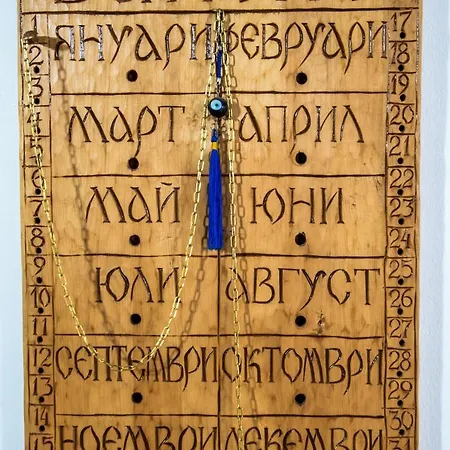 ЯНУАРИ ФЕВРУАРИ
МАРТ АПРИЛ
МАЙ ЮНИ
ЮЛИ АВГУСТ
СЕПТЕМВРИ ОКТОМВРИ
НОЕМВРИ ДЕКЕМВРИ
1
2
3
4
5
6
7
8
9
10
11
12
13
14
15
17
18
19
20
21
22
23
24
25
26
27
28
29
30
31